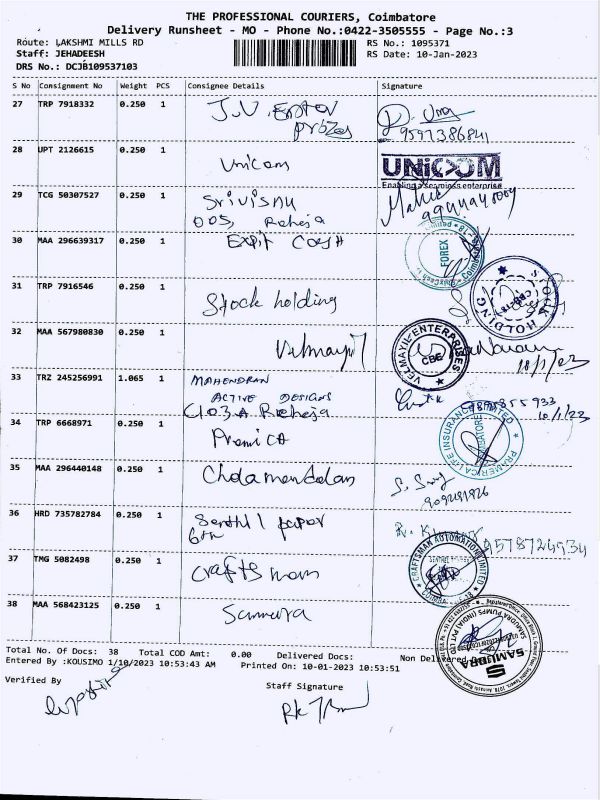 THE PROFESSIONAL COURIERS, Coimbatore
Delivery Runsheet - MO - Phone No.:0422-3505555 - Page No.:3
Route: LAKSHMI MILLS RD RS No.: 1095371
Staff: JEHADEESH RS Date: 10-Jan-2023
DRS No.: DCJB109537103
S No Consignment No Weight PCS Consignee Details Signature
27 TRP 7918332 0.250 1 J.V.
9597386841
28 UPT 2126615 0.250 1 Unicom UNICOM
Enabling a seamless enterprise
29 TCG 50307527 0.250 1 Srivisnu
005, Raheja
30 MAA 296639317 0.250 1 Expit Cash FOREX
31 TRP 7916546 0.250 1 Stock holding STOCK HOLDING
32 MAA 567980830 0.250 1 Velmayil VELMAYIL ENTERPRISES CBE
10/1/23
33 TRZ 245256991 1.065 1 MAHENDRAN
ACTIVE DESIGNS 10/1/23
C103A Raheja
34 TRP 6668971 0.250 1 Pramica PRAMERICA LIFE INSURANCE LIMITED
35 MAA 296440148 0.250 1 Cholamandalam
36 HRD 735782784 0.250 1 Senthil paper
9578724934
37 TMG 5082498 0.250 1 Craftsman CRAFTSMAN AUTOMATION LIMITED
38 MAA 568423125 0.250 1 Samudra SAMUDRA PUMPS (INDIA) PVT LTD
SAMUDRA
Total No. Of Docs: 38 Total COD Amt: 0.00 Delivered Docs: Non Delivered
Entered By :KOUSIMO 1/10/2023 10:53:43 AM Printed On: 10-01-2023 10:53:51
Verified By Staff Signature